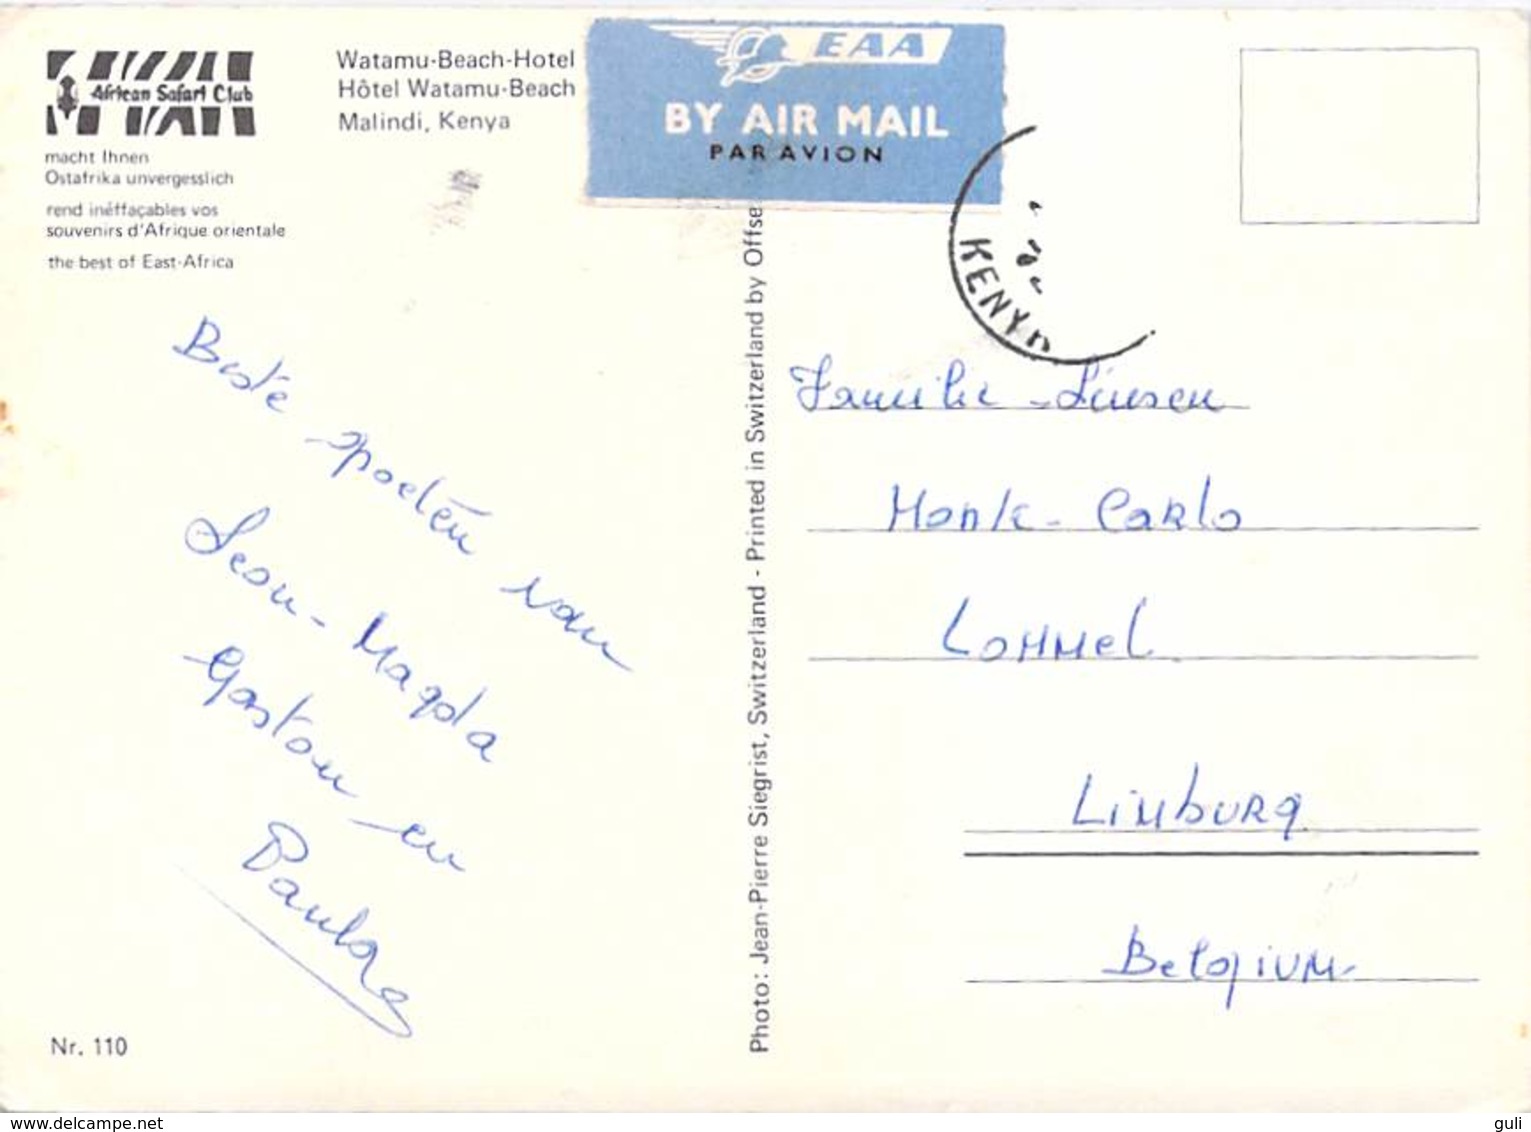 African Safari Club
macht Ihnen
Ostafrika unvergesslich
rend inéffaçables vos
souvenirs d'Afrique orientale
the best of East-Africa
Watamu-Beach-Hotel
Hôtel Watamu-Beach
Malindi, Kenya
EAA
BY AIR MAIL
PAR AVION
KENYA
Beste
groeten van
Leon - Magda
Gaston en
Paula
Nr. 110
Photo: Jean-Pierre Siegrist, Switzerland - Printed in Switzerland by Offse
Familie Linsen
Monte-Carlo
Lommel
Limburg
Belgium
www.delcampe.net
guli